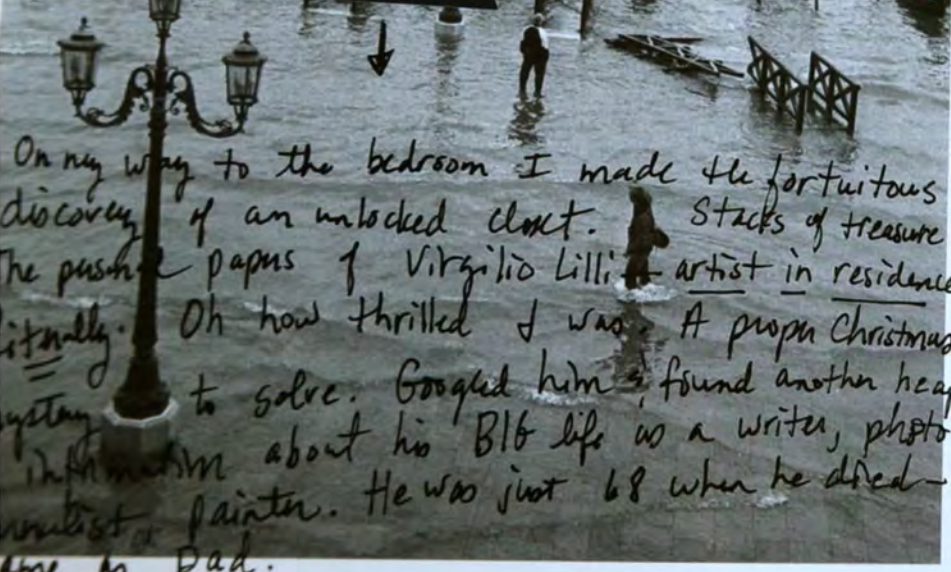 On my way to the bedroom I made the fortuitous
discovery of an unlocked closet. Stacks of treasure
The personal papers of Virgilio Lilli - artist in residence
literally. Oh how thrilled I was. A proper Christmas
mystery to solve. Googled him & found another heap
information about his BIG life as a writer, photo
journalist, painter. He was just 68 when he died -
same as Dad.